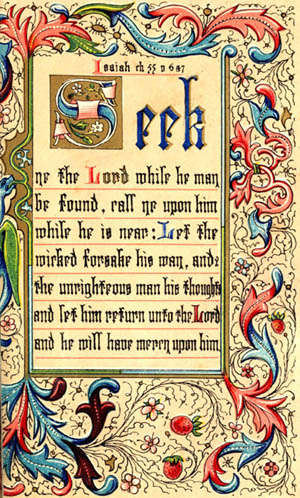 Isaiah ch 55 v 6 & 7
Seek
ye the Lord while he may
be found, call ye upon him
while he is near: Let the
wicked forsake his way, and
the unrighteous man his thoughts
and let him return unto the Lord
and he will have mercy upon him,